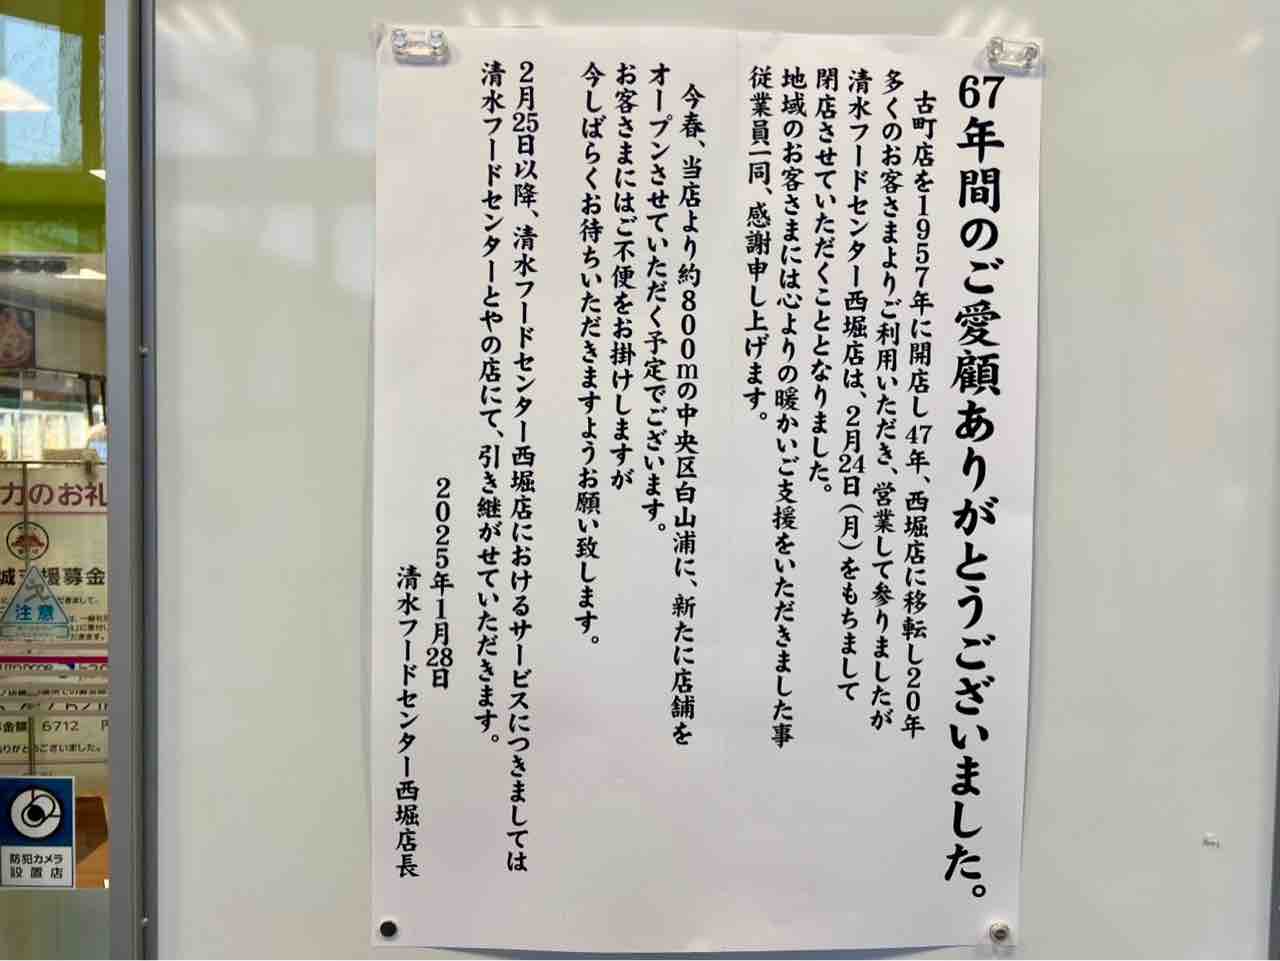 67年間のご愛顧ありがとうございました。
古町店を1957年に開店し47年、西堀店に移転し20年
多くのお客さまよりご利用いただき、営業して参りましたが
清水フードセンター西堀店は、2月24日(月)をもちまして
閉店させていただくこととなりました。
地域のお客さまには心よりの暖かいご支援をいただきました事
従業員一同、感謝申し上げます。
今春、当店より約800mの中央区白山浦に、新たに店舗を
オープンさせていただく予定でございます。
お客さまにはご不便をお掛けしますが
今しばらくお待ちいただきますようお願い致します。
2月25日以降、清水フードセンター西堀店におけるサービスにつきましては
清水フードセンターとやの店にて、引き継がせていただきます。
2025年1月28日
清水フードセンター西堀店長
力のお礼
援募金
注意
金額 6712 円
ありがとうございました。
防犯カメラ
設置店